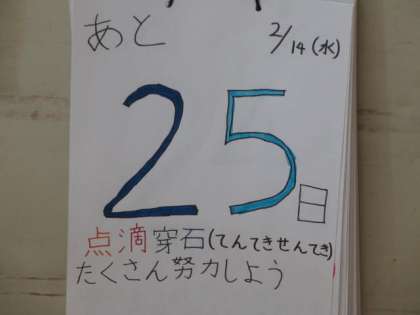 あと 2/14(水)
25日
点滴穿石(てんてきせんてき)
たくさん努力しよう